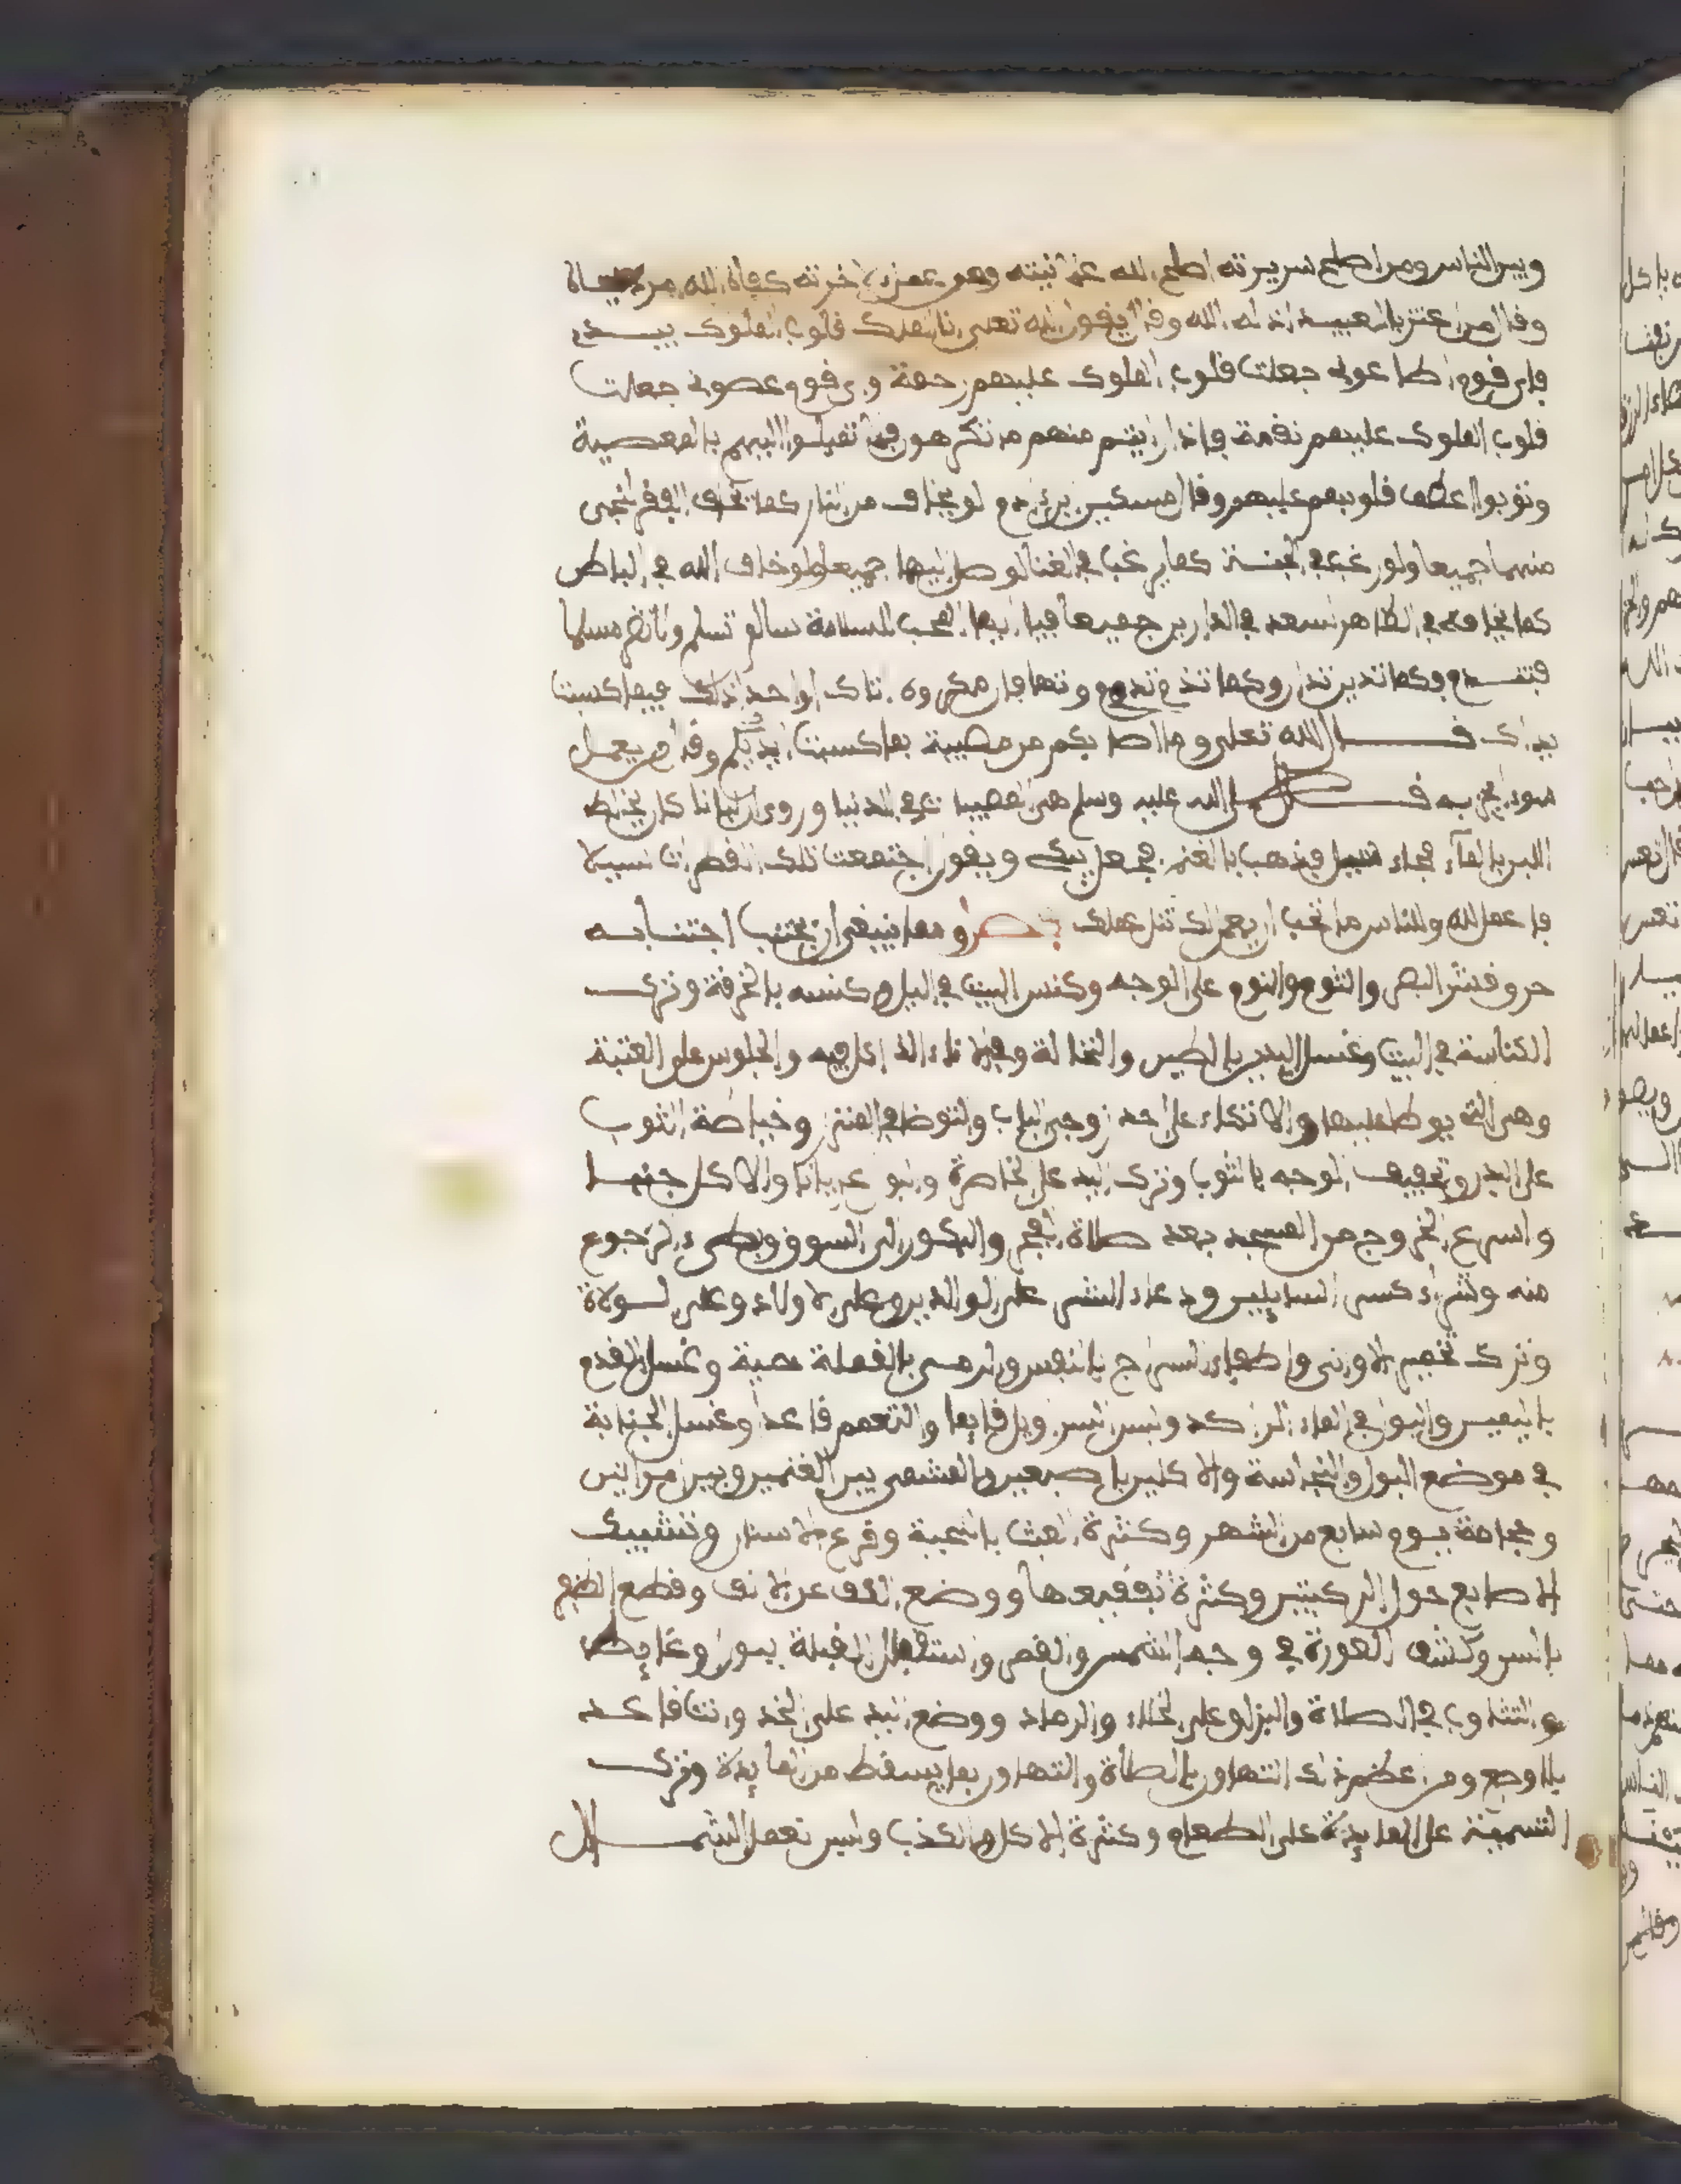 وبين الناس ومن اصلح سريرته اصلح الله علانيته ومن عمل لاخرته كفاه الله من دنياه
وقال من اعتز بالعبيد اذله الله وقال يقول الله تعلى انا الملك قلوب الملوك بيدي
فاي قوم اطاعوني جعلت قلوب الملوك عليهم رحمة واي قوم عصوني جعلت
قلوب الملوك عليهم نقمة فاذا رايتم منهم ما تكرهون فلا تقبلوا اليهم بالمعصية
وتوبوا اعطف قلوبهم عليهم وقال مسكين بن ءادم لو يخاف من النار كما يخاف الفقر لنجى
منهما جميعا ولو رغب في الجنة كما يرغب في الغنا لوصل اليهما جميعا ولو خاف الله في الباطن
كما يخافه في الظاهر لسعد في الدارين جميعا فيا ايها المحب للسلامة سالم تسلم ولا تضر مسلما
فتندم وكما تدين تدان وكما تذم تذم ومهما فان مكروه اتاك الواحد ذلك فبما كسبت
يداك قال الله تعلى وما اصابكم من مصيبة بما كسبت ايديكم وقال من يعمل
سوءا يجز به قال صلى الله عليه وسلم هي المصيبات في الدنيا وروي ان لبانا كان يخلط
اللبن بالماء فجاء سيل فذهب بالغنم فجعل يبكي ويقول اجتمعت تلك القطرات سيلا
فاعمل لله وللناس ما تحب ان يعمل لك مثل عملك فصل ومما ينبغي ان يجتنب اجتنابه
حروق قشر البصل والثوم والنوم على الوجه وكنس البيت في اليل وكنسه بالخرقة وترك
الكناسة في البيت وغسل اليدين بالطين والنخالة وفي الاناء الذي اكل فيه والجلوس على العتبة
وهي التي يوطا عليها والاتكاء على احد زوجي الباب والتوضا في المنزل وخياطة الثوب
على البدن وتجفيف الوجه بالثوب وترك اليد على الخاصرة والبول عريانا والاكل جنبا
واسرع الخروج من المسجد بعد صلاة الفجر والبكور الى السوق وبطيء الرجوع
منه وشراء كسر السايلين ودعاء الشر على الوالدين وعلى الاولاد وعلى لسولاة
وترك تخمير الاواني واطفاء السراج بالنفس والرمي بالقملة حية وغسل القدم
باليمين والبول في الماء الراكد ولبس السراويل قايما والتعمم قاعدا وغسل الجنابة
في موضع البول والنجاسة والاكل باصبعين والمشي بين الغنمين وبين مراتين
وحجامة يوم سابع من الشهر وكثرة العبث بالحية وقرع الاسنان وتشبيك
الاصابع حول الركبتين وكثرة تفقيعها ووضع الكف على الانف وقطع الظفر
بالسن وكشف العورة في وجه الشمس والقمر واستقبال القبلة ببول وغايط
والتثاوب في الصلاة والبزاق على الخلاء والرماد ووضع اليد على الخد وانت قاعد
بلا وجع ومن اعظم ذلك التهاون بالصلاة والتهاون بما يسقط من المايدة وترك
التسمية على المايدة على الطعام وكثرة الاكل والكذب ولبس نعل الشمال